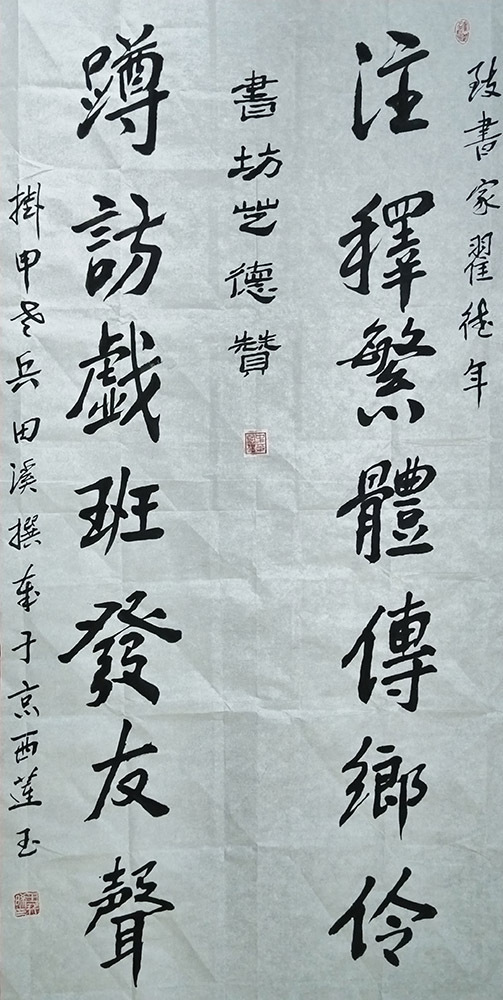 致書家翟德年
注釋繁體傳鄉伶
書坊艺德贊
蹲訪戲班發友聲
掛甲老兵田溪撰奉于京西莲玉